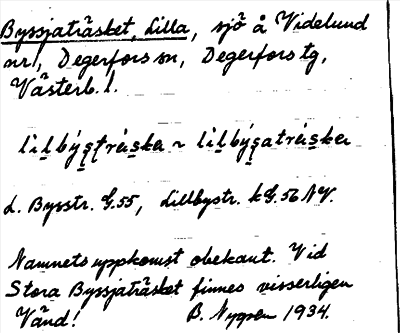 Byssjaträsket, Lilla, sjö å Videlund
nr 1, Degerfors sn, Degerfors tg,
Västerb. l.
lìlbýs̩t̩ræ̀iska ~ lìlbýs̩atræ̀iska
L. Bysstr. G.55, Lillbystr. kG.56 NV.
Namnets uppkomst obekant. Vid
Stora Byssjaträsket finnes visserligen
Vänd! B. Nygren 1934.